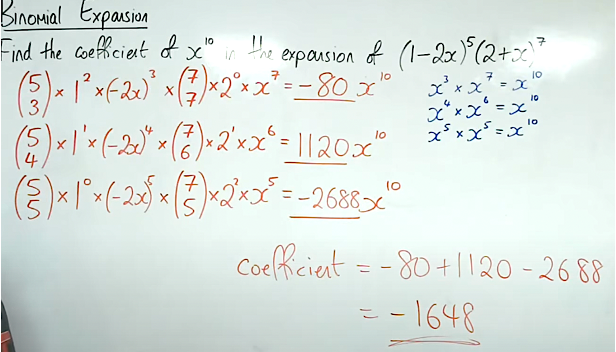 Binomial Expansion
Find the coefficient of x¹⁰ in the expansion of (1-2x)⁵(2+x)⁷
(5 3) × 1² × (-2x)³ × (7 7) × 2⁰ × x⁷ = -80 x¹⁰
(5 4) × 1¹ × (-2x)⁴ × (7 6) × 2¹ × x⁶ = 1120x¹⁰
(5 5) × 1⁰ × (-2x)⁵ × (7 5) × 2² × x⁵ = -2688x¹⁰
x³ × x⁷ = x¹⁰
x⁴ × x⁶ = x¹⁰
x⁵ × x⁵ = x¹⁰
coefficient = -80+1120-2688
= -1648